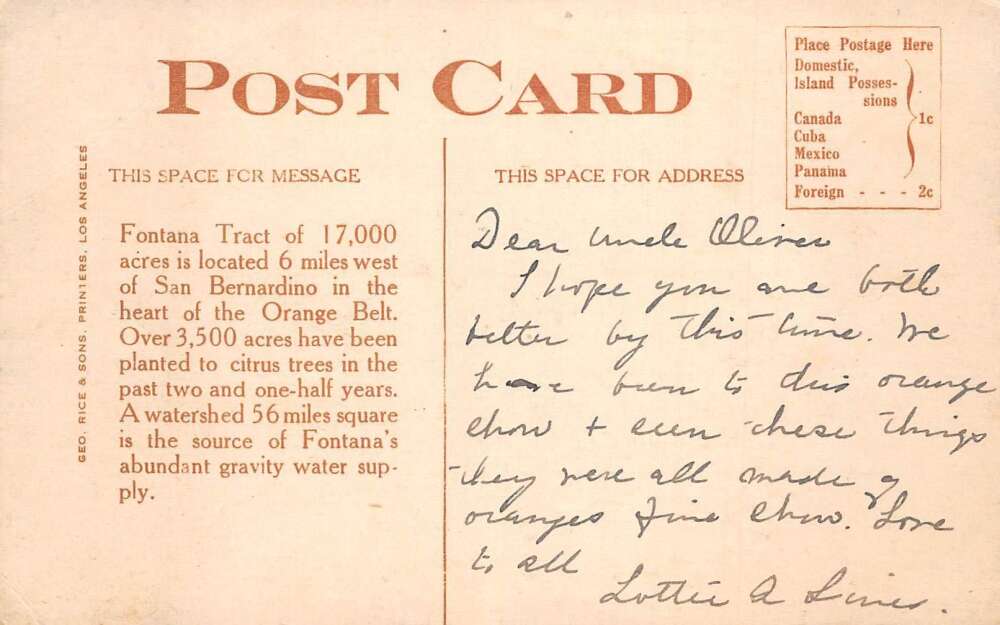 POST CARD
Place Postage Here
Domestic,
Island Posses-
sions
Canada 1c
Cuba
Mexico
Panama
Foreign - - - 2c
GEO. RICE & SONS, PRINTERS, LOS ANGELES
THIS SPACE FOR MESSAGE
Fontana Tract of 17,000
acres is located 6 miles west
of San Bernardino in the
heart of the Orange Belt.
Over 3,500 acres have been
planted to citrus trees in the
past two and one-half years.
A watershed 56 miles square
is the source of Fontana's
abundant gravity water sup-
ply.
THIS SPACE FOR ADDRESS
Dear Uncle Oliver
I hope you are both
better by this time. We
have been to this orange
show + seen these things
they were all made of
oranges fine show. Love
to all
Lottie A